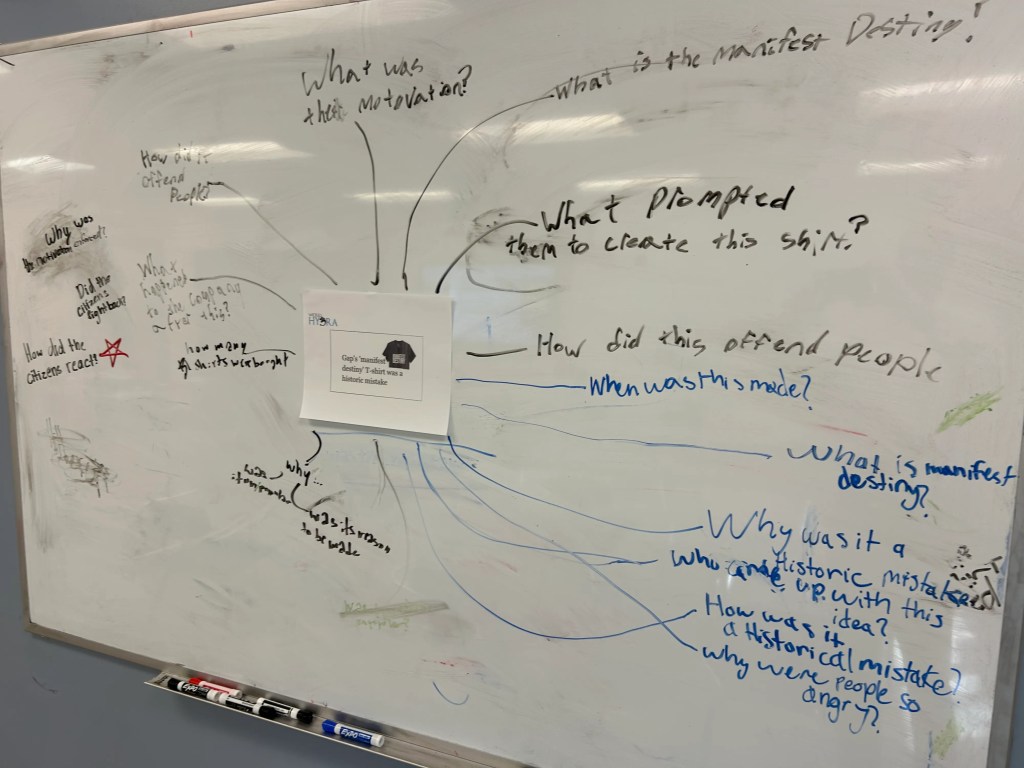 What was
their Motovation?
What is the Manifest Destiny?
How did it
offend
People?
What Prompted
them to create this shirt?
Why was
What
happened
to the company
after this?
Did the
citizens
fight back?
How did the
citizens react?
how many
shirts were bought
HYDRA
Gap's 'manifest
destiny' T-shirt was a
historic mistake
How did this offend people
When was this made?
What is manifest
destiny?
why...
was
was its reason
to be made
Why was it a
Historic mistake
Who came up with this
idea?
How was it
a Historical mistake?
why were people so
angry?
EXPO